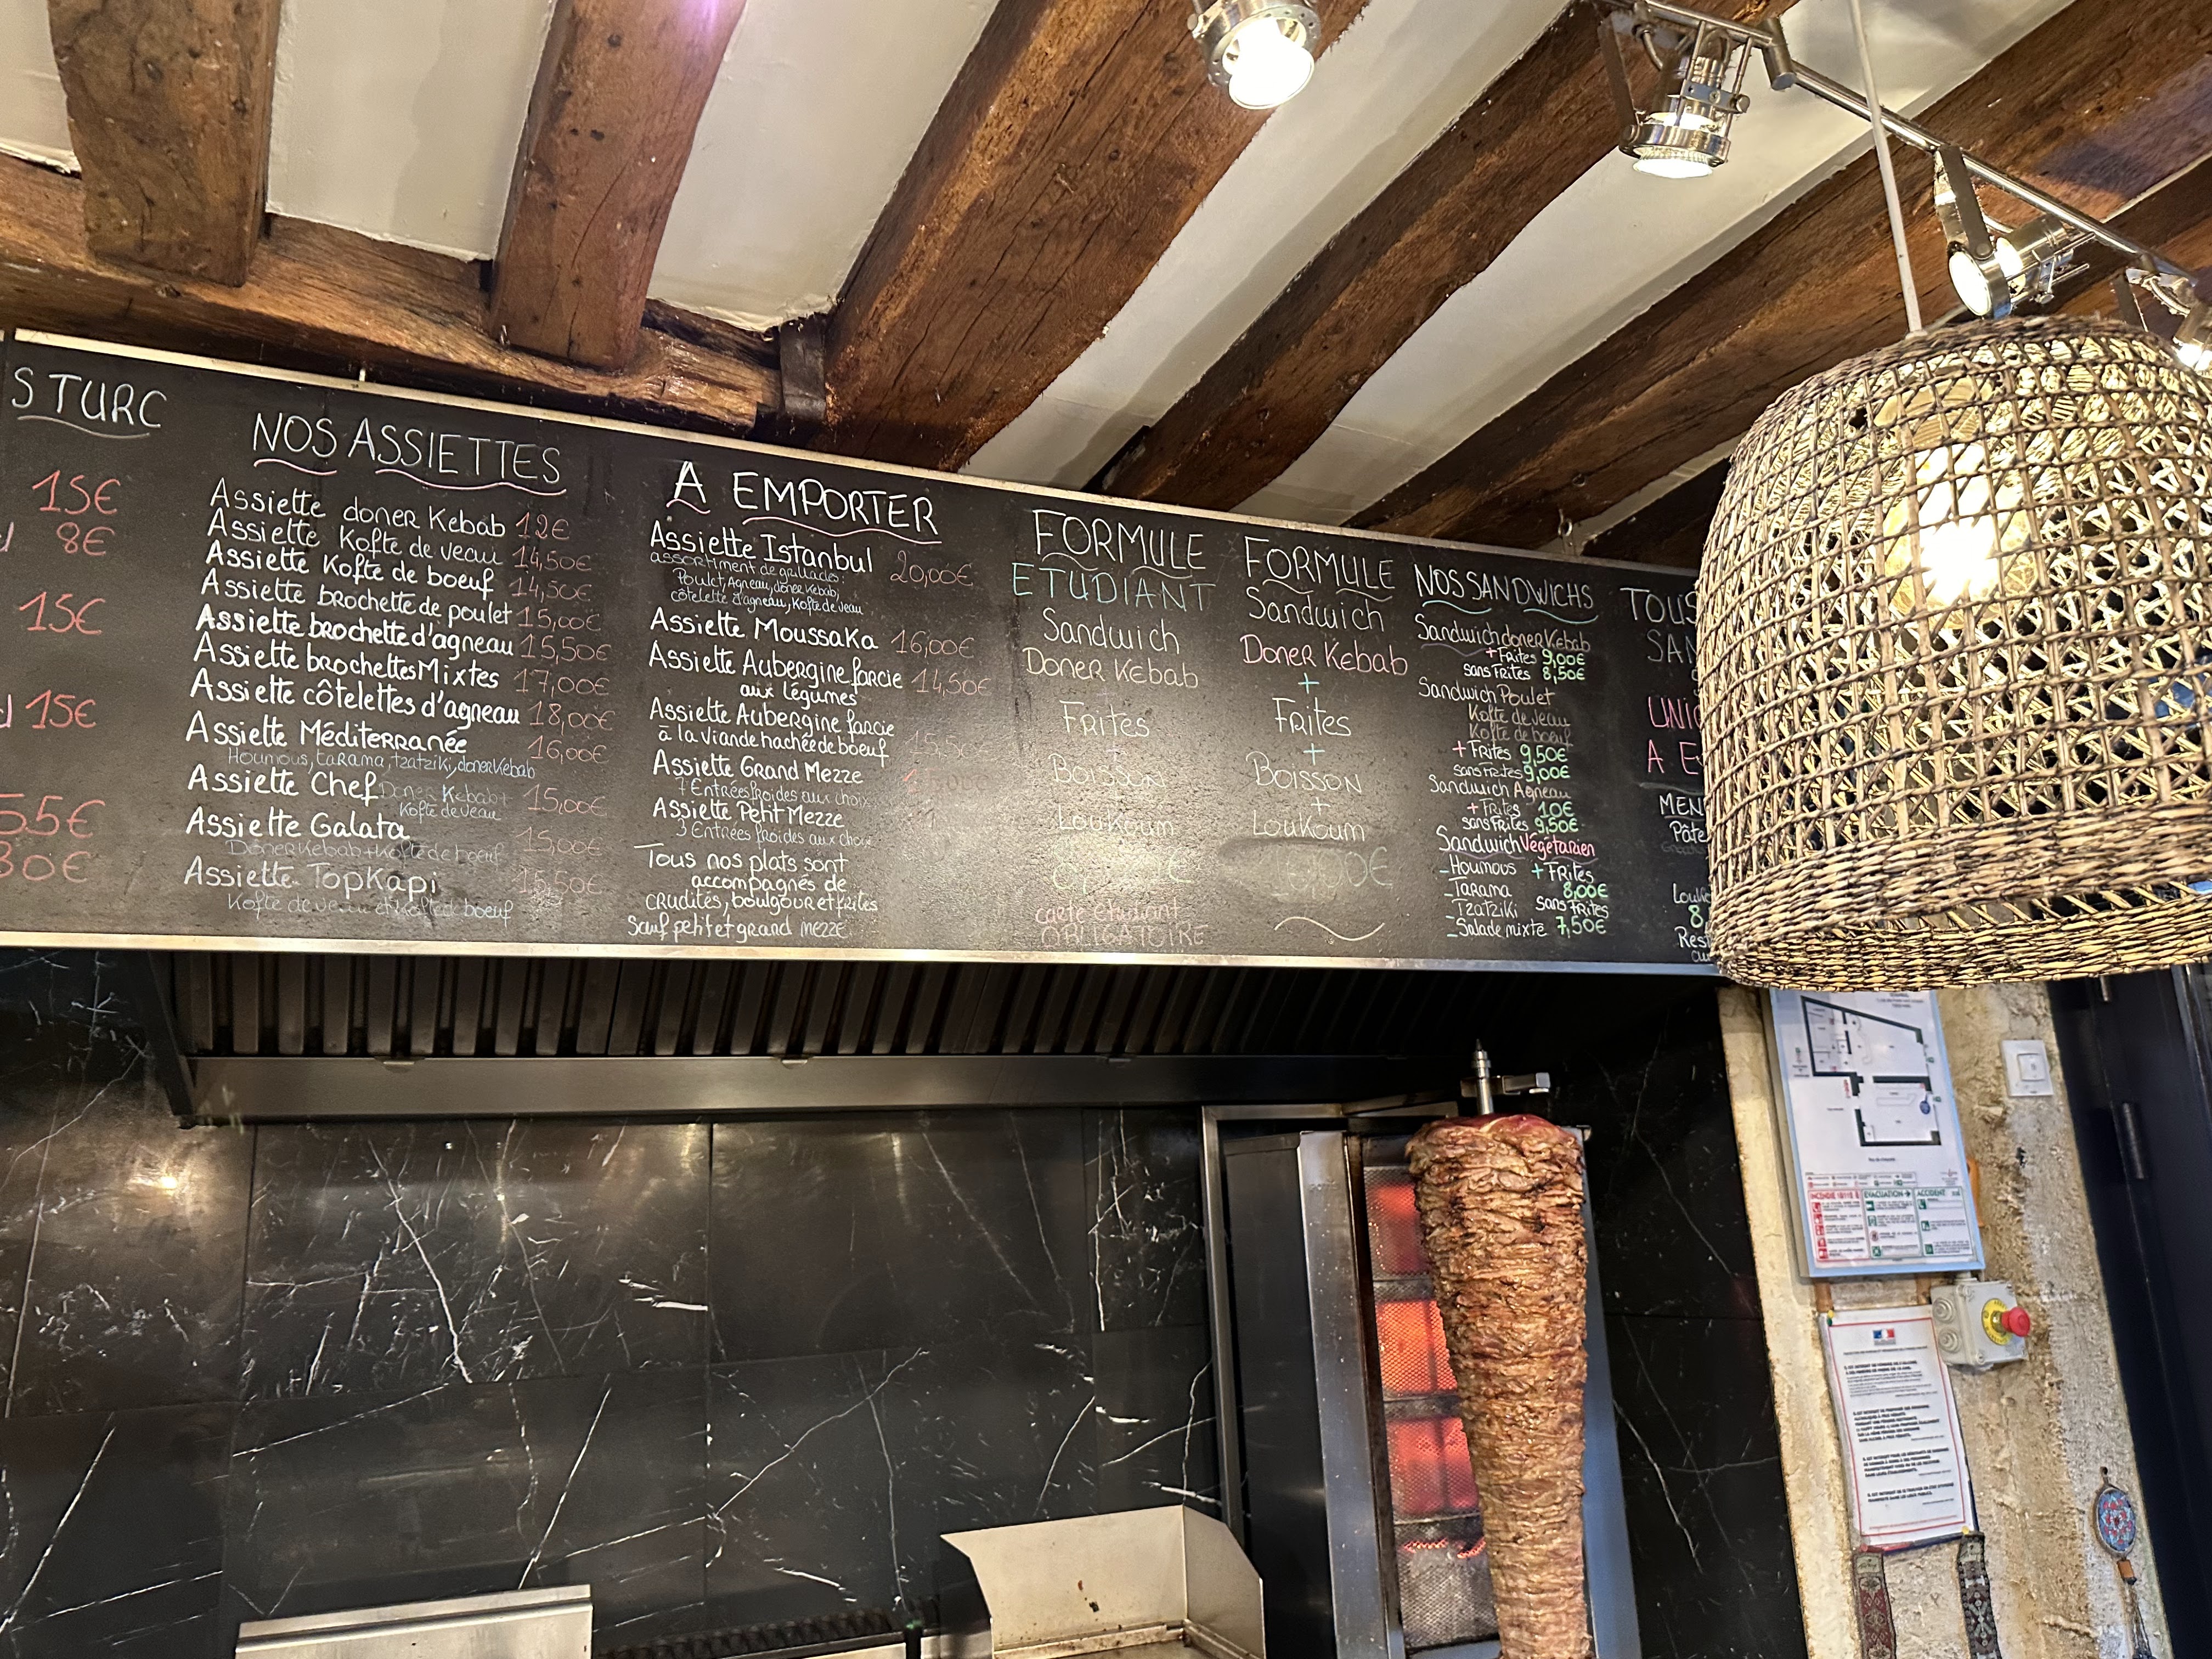 S TURC
15€
8€
15€
15€
55€
30€
NOS ASSIETTES
Assiette doner Kebab 12€
Assiette Kofte de veau 14,50€
Assiette Kofte de boeuf 14,50€
Assiette brochette de poulet 15,00€
Assiette brochette d'agneau 15,50€
Assiette brochettes Mixtes 17,00€
Assiette côtelettes d'agneau 18,00€
Assiette Méditerranée 16,00€
Houmous, tarama, tzatziki, doner Kebab
Assiette Chef Doner Kebab + 15,00€
Kofte de veau
Assiette Galata 15,00€
Doner Kebab + Kofte de boeuf
Assiette TopKapi 15,50€
Kofte de veau et Kofte de boeuf
A EMPORTER
Assiette Istanbul 20,00€
assortiment de grillades:
Poulet, Agneau, doner Kebab,
côtelette d'agneau, Kofte de veau
Assiette MoussaKa 16,00€
Assiette Aubergine farcie 14,50€
aux légumes
Assiette Aubergine farcie
à la viande hachée de boeuf 15,50€
Assiette Grand Mezze
7 Entrées froides aux choix
Assiette Petit Mezze
3 Entrées froides aux choix
Tous nos plats sont
accompagnés de
crudités, boulgour et frites
Sauf petit et grand mezze
FORMULE
ETUDIANT
Sandwich
Doner Kebab
+
Frites
+
Boisson
+
LouKoum
carte étudiant
OBLIGATOIRE
FORMULE
Sandwich
Doner Kebab
+
Frites
+
Boisson
+
LouKoum
NOS SANDWICHS
Sandwich doner Kebab
+ Frites 9,00€
sans Frites 8,50€
Sandwich Poulet
Kofte de veau
Kofte de boeuf
+ Frites 9,50€
sans Frites 9,00€
Sandwich Agneau
+ Frites 10€
sans Frites 9,50€
Sandwich Végétarien
- Houmous + Frites
- Tarama 8,00€
- Tzatziki sans Frites
- Salade mixte 7,50€
TOUS
SAN
UNI
A E
MEN
Pâte
LouK
8,
Res
INCENDIE
EVACUATION
ACCIDENT